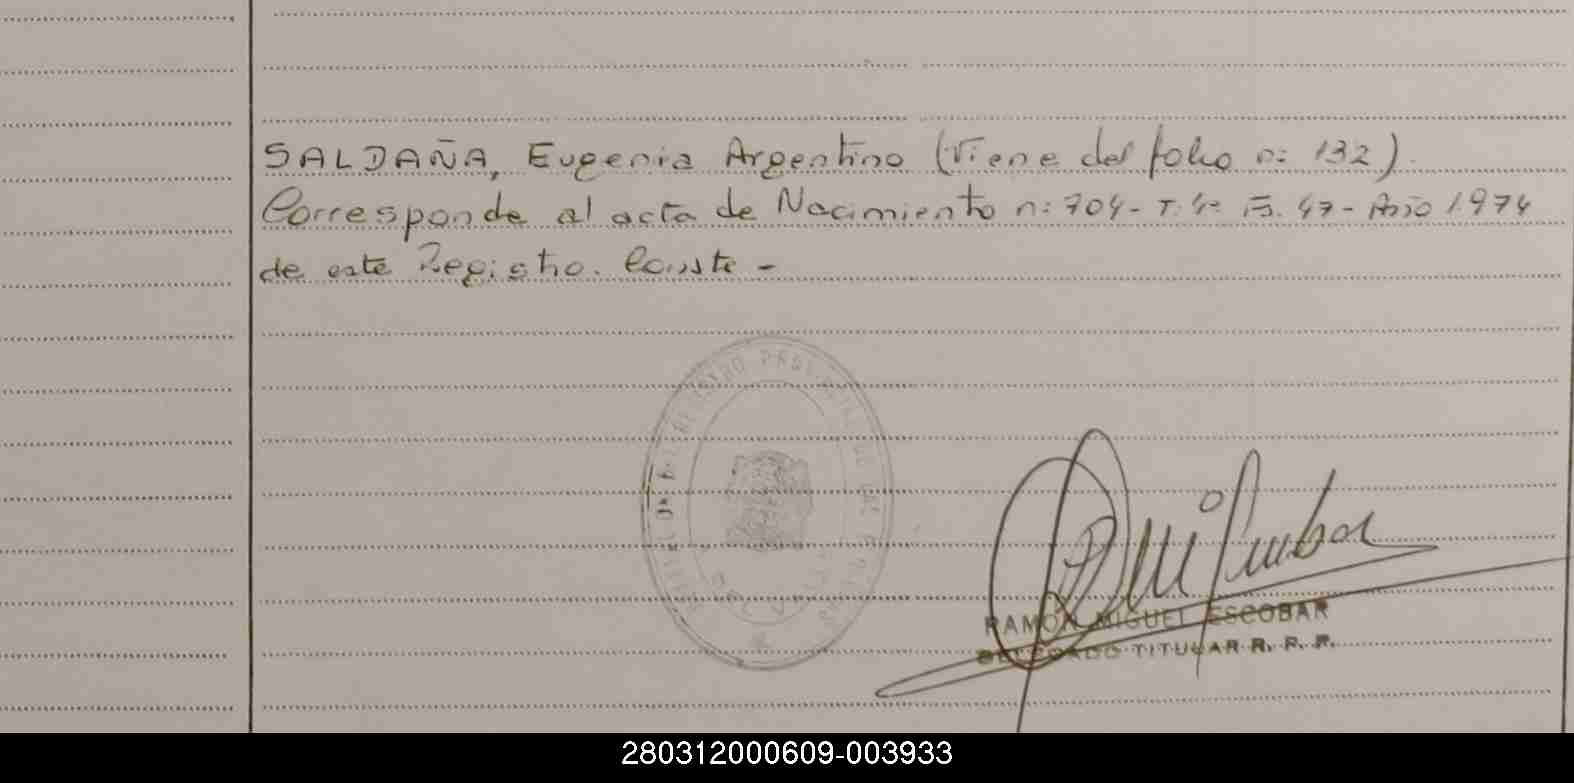 SALDAÑA, Eugenia Argentino (Viene del folio n: 132).
Corresponde al acta de Nacimiento n: 704- T. 4º Fs. 47- Año 1974
de este Registro. Conste -
RAMON MIGUEL ESCOBAR
DELEGADO TITULAR R. P. P.
280312000609-003933